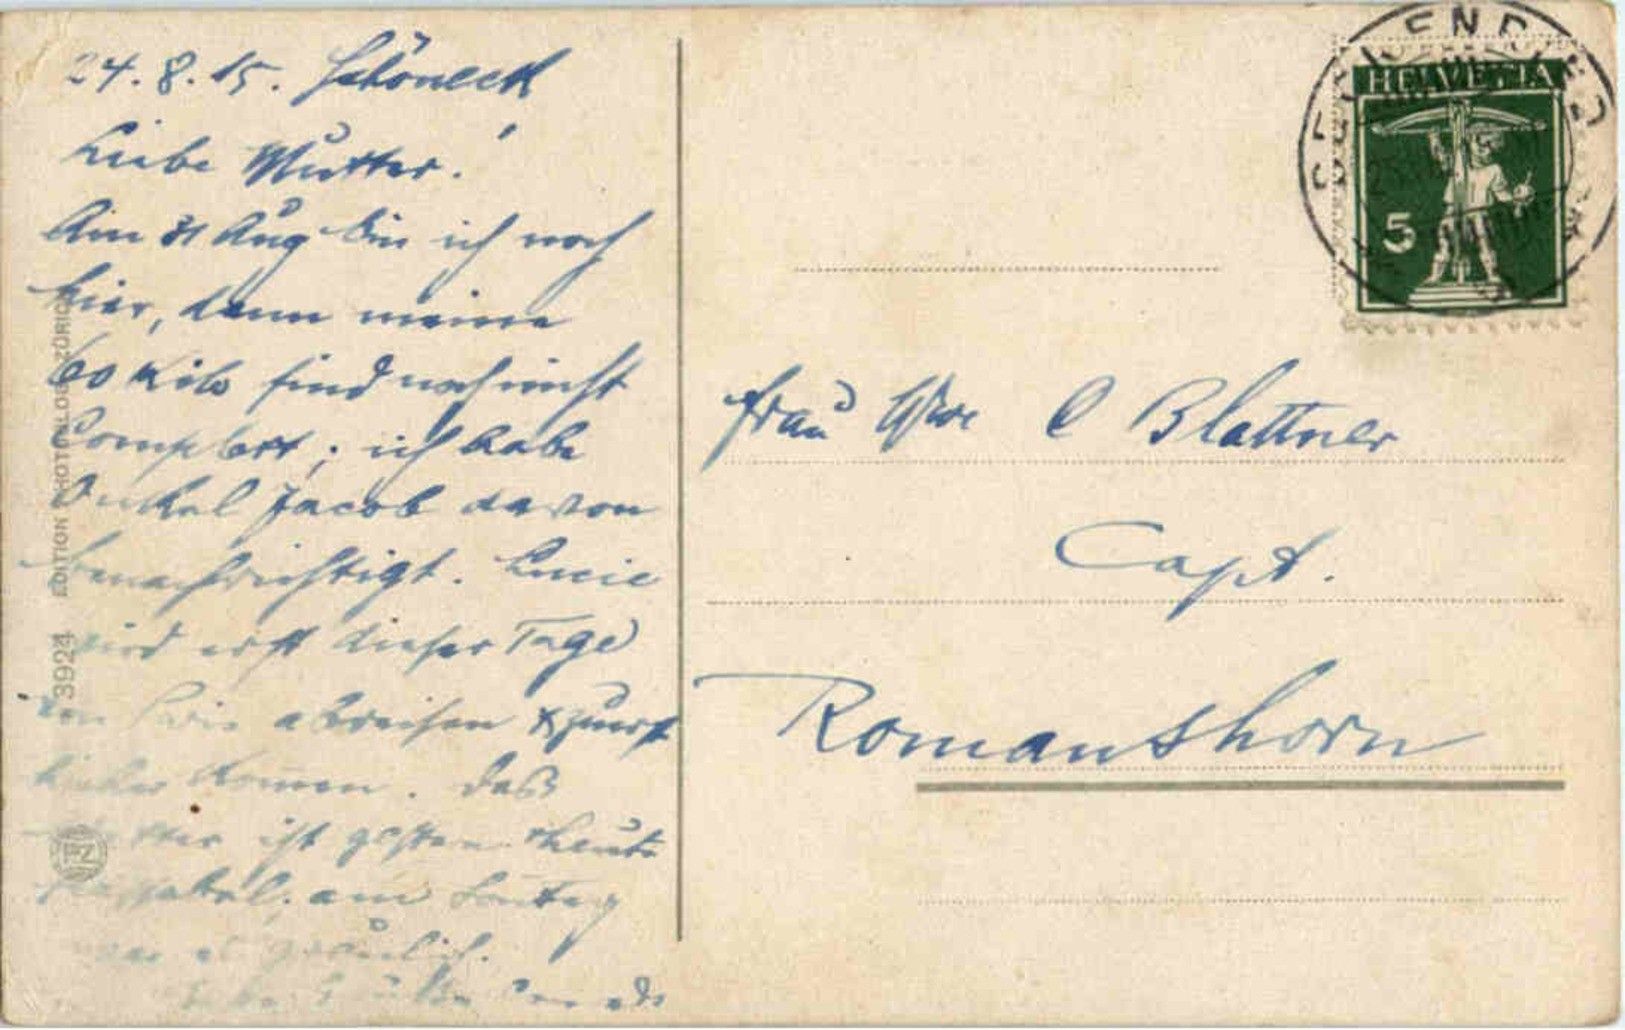 24.8.15. Schöneck
Liebe Mutter!
Am 31 Aug bin ich noch
hier, denn meine
60 Kilo sind noch nicht
Complett; ich habe
Onkel Jacob davon
benachrichtigt. Lucie
wird erst dieser Tage
von Paris abreisen & zuerst
hieher komen. Das
ist gestern & heute
am Sontag
war es
HELVETIA
5
Frau Wwe C Blattner
Capt.
Romanshorn
3924 EDITION PHOTOGLOB ZÜRICH
PZ